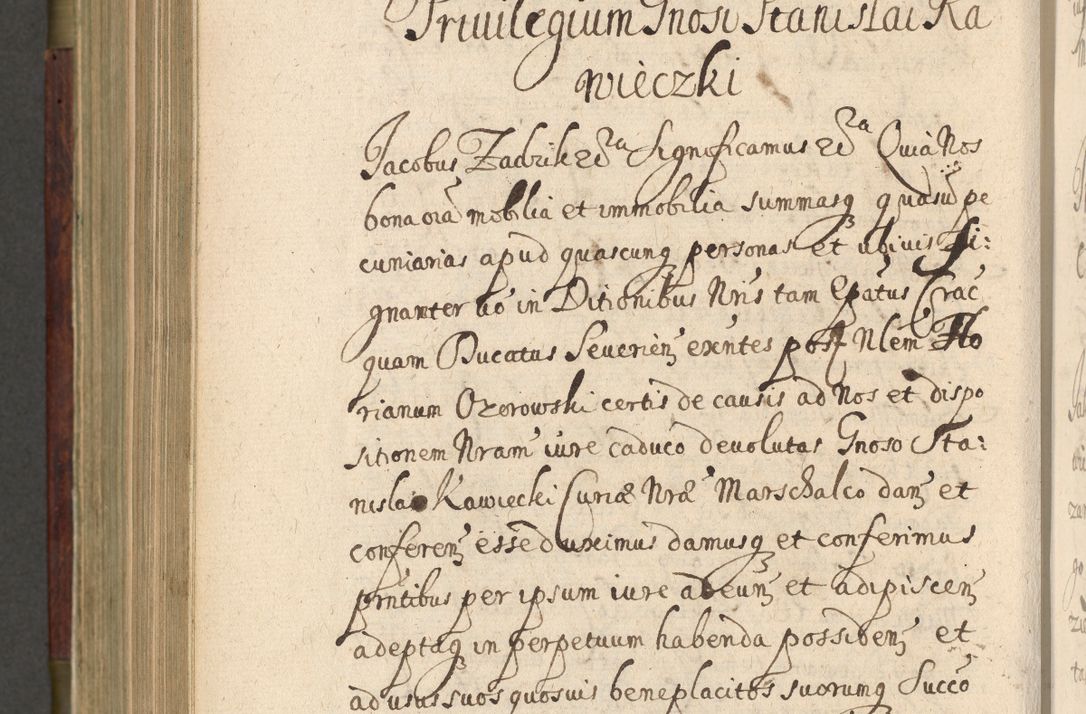 Priuilegium Gnosi Stanislai Ka
wieczki
Jacobus Zadzik etc̃a Significamus etc̃a Quia Nos
bona oia mobilia et immobilia summasq quasuis pe
cuniarias apud quascunq personas et ubiuis Si:
gnanter uo in Ditionibus Nris tam Epatus Crac
quam Ducatus Seuerien exntes post Nlem Flo
rianum Ozorowski certis de causis ad Nos et dispo
sitionem Nram iure caduco deuolutas Gnoso Sta:
nislao Kawiecki Curiæ Nræ Marschalco dan et
conferen esse duximus damusq et conferimus
pntibus per ipsum iure adeun et adipiscen
adeptaq in perpetuum habenda possiden et
ad usus suos quosuis beneplacitos suorumq Succo